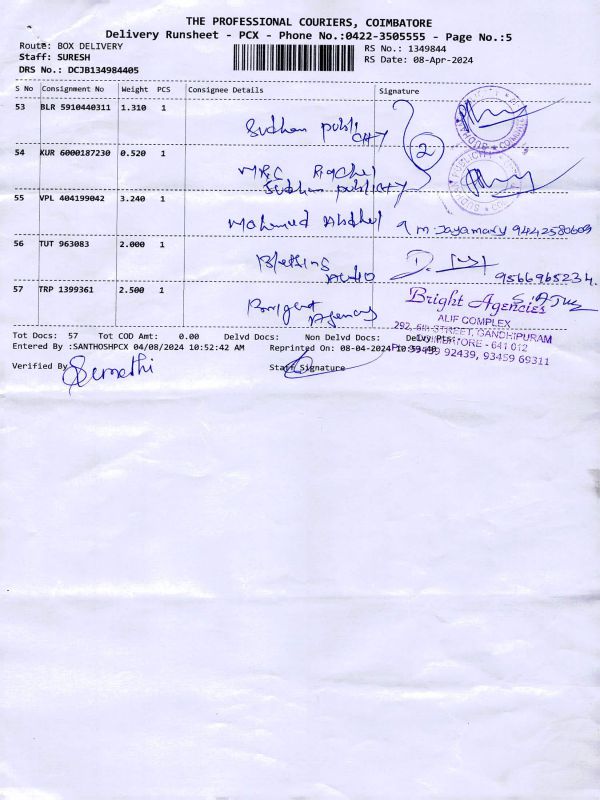 THE PROFESSIONAL COURIERS, COIMBATORE
Delivery Runsheet - PCX - Phone No.:0422-3505555 - Page No.:5
Route: BOX DELIVERY
Staff: SURESH
DRS No.: DCJB134984405
RS No.: 1349844
RS Date: 08-Apr-2024
S No Consignment No Weight PCS Consignee Details Signature
53 BLR 5910440311 1.310 1
Sudhan publi
city
2
54 KUR 6000187230 0.520 1
Sudhan publicity
55 VPL 404199042 3.240 1
Mohamed Abdhul
m. Jayamary 9442580609
56 TUT 963083 2.000 1
Blessing
Audio
9566965234.
57 TRP 1399361 2.500 1
Agencies
Bright Agencies
ALIF COMPLEX
292, 6th STREET, GANDHIPURAM
COIMBATORE - 641 012
92439, 93459 69311
Tot Docs: 57 Tot COD Amt: 0.00 Delvd Docs: Non Delvd Docs: Delvy Pts:
Entered By :SANTHOSHPCX 04/08/2024 10:52:42 AM Reprinted On: 08-04-2024
Verified By
Staff Signature